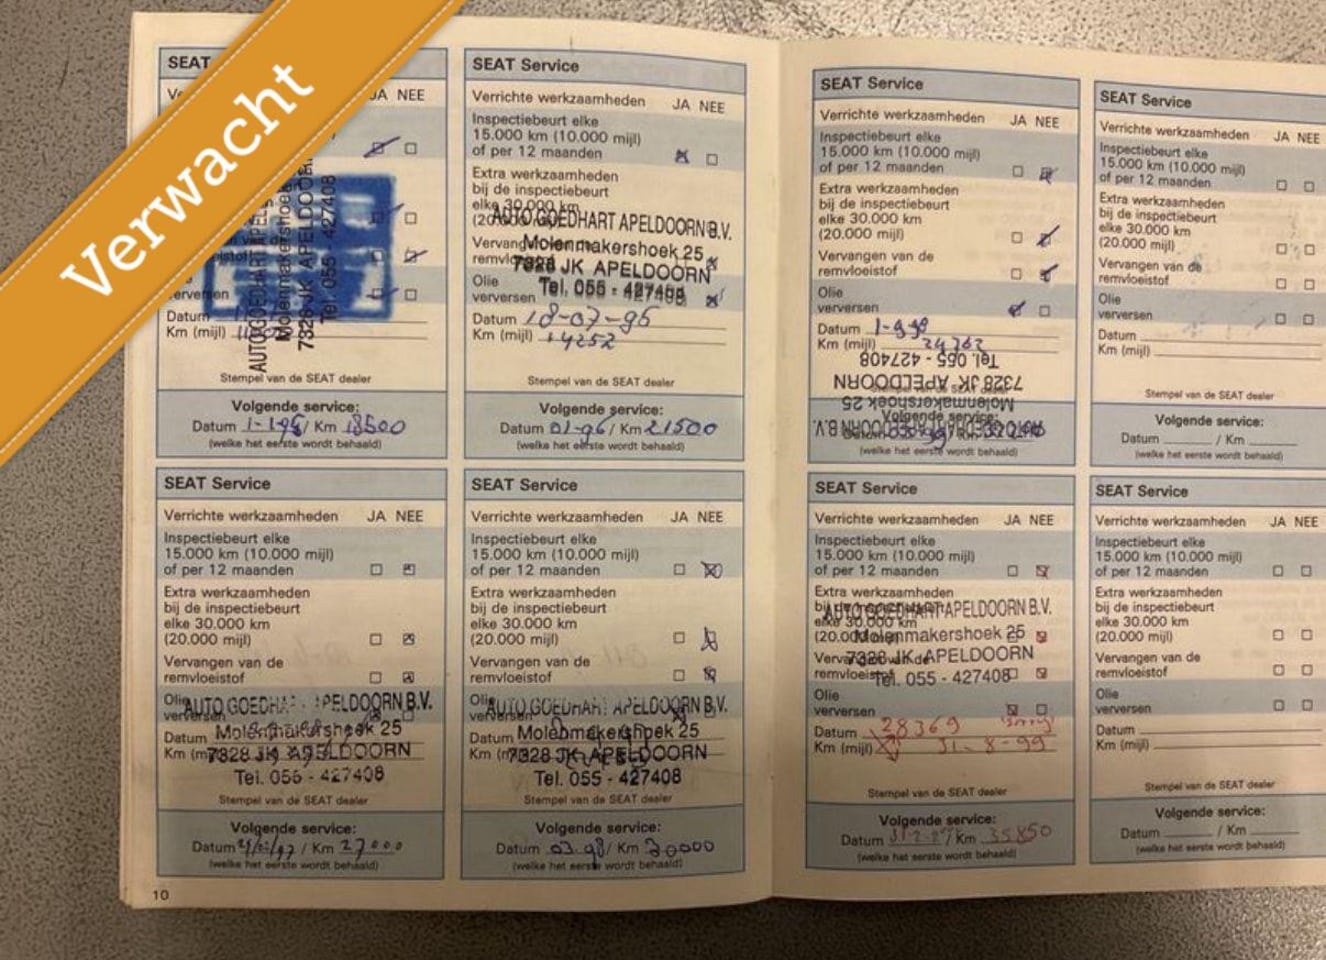 Verwacht
SEAT
JA NEE
Datum
Km (mijl)
AUTO GOEDHART APEL
Molenmakershoe
7328 JK APELDOOR
Tel. 055 - 427408
Stempel van de SEAT dealer
Volgende service:
Datum 1-1-96 / Km 18500
(welke het eerste wordt behaald)
SEAT Service
Verrichte werkzaamheden JA NEE
Inspectiebeurt elke
15.000 km (10.000 mijl)
of per 12 maanden
Extra werkzaamheden
bij de inspectiebeurt
elke 30.000 km
AUTO GOEDHART APELDOORN B.V.
Molenmakershoek 25
7328 JK APELDOORN
Olie
Tel. 055 - 427408
verversen
Datum 18-07-96
Km (mijl) 14252
Stempel van de SEAT dealer
Volgende service:
Datum 01-96 / Km 21500
(welke het eerste wordt behaald)
SEAT Service
Verrichte werkzaamheden JA NEE
Inspectiebeurt elke
15.000 km (10.000 mijl)
of per 12 maanden
Extra werkzaamheden
bij de inspectiebeurt
elke 30.000 km
(20.000 mijl)
Vervangen van de
remvloeistof
Olie
AUTO GOEDHART APELDOORN B.V.
verversen
Molenmakershoek 25
7328 JK APELDOORN
Tel. 055 - 427408
Stempel van de SEAT dealer
Volgende service:
Datum / Km 27000
(welke het eerste wordt behaald)
SEAT Service
Verrichte werkzaamheden JA NEE
Inspectiebeurt elke
15.000 km (10.000 mijl)
of per 12 maanden
Extra werkzaamheden
bij de inspectiebeurt
elke 30.000 km
(20.000 mijl)
Vervangen van de
remvloeistof
Olie
AUTO GOEDHART APELDOORN B.V.
verversen
Datum
Molenmakershoek 25
7328 JK APELDOORN
Tel. 055 - 427408
Stempel van de SEAT dealer
Volgende service:
Datum 03-98 / Km 30000
(welke het eerste wordt behaald)
10
SEAT Service
Verrichte werkzaamheden JA NEE
Inspectiebeurt elke
15.000 km (10.000 mijl)
of per 12 maanden
Extra werkzaamheden
bij de inspectiebeurt
elke 30.000 km
(20.000 mijl)
Vervangen van de
remvloeistof
Olie
verversen
Datum 1-998
Km (mijl)
Tel. 055 - 427408
7328 JK APELDOORN
Molenmakershoek 25
Volgende service:
(welke het eerste wordt behaald)
SEAT Service
Verrichte werkzaamheden JA NEE
Inspectiebeurt elke
15.000 km (10.000 mijl)
of per 12 maanden
Extra werkzaamheden
bij de inspectiebeurt
elke 30.000 km
(20.000 mijl)
Vervangen van de
remvloeistof
Olie
verversen
Datum
Km (mijl)
Stempel van de SEAT dealer
Volgende service:
Datum / Km
(welke het eerste wordt behaald)
SEAT Service
Verrichte werkzaamheden JA NEE
Inspectiebeurt elke
15.000 km (10.000 mijl)
of per 12 maanden
Extra werkzaamheden
AUTO GOEDHART APELDOORN B.V.
elke 30.000 km
Molenmakershoek 25
7328 JK APELDOORN
Tel. 055 - 427408
Olie
verversen
Datum 28369
Km (mijl) 31-8-99
Stempel van de SEAT dealer
Volgende service:
Datum / Km 35850
(welke het eerste wordt behaald)
SEAT Service
Verrichte werkzaamheden JA NEE
Inspectiebeurt elke
15.000 km (10.000 mijl)
of per 12 maanden
Extra werkzaamheden
bij de inspectiebeurt
elke 30.000 km
(20.000 mijl)
Vervangen van de
remvloeistof
Olie
verversen
Datum
Km (mijl)
Stempel van de SEAT dealer
Volgende service:
Datum / Km
(welke het eerste wordt behaald)